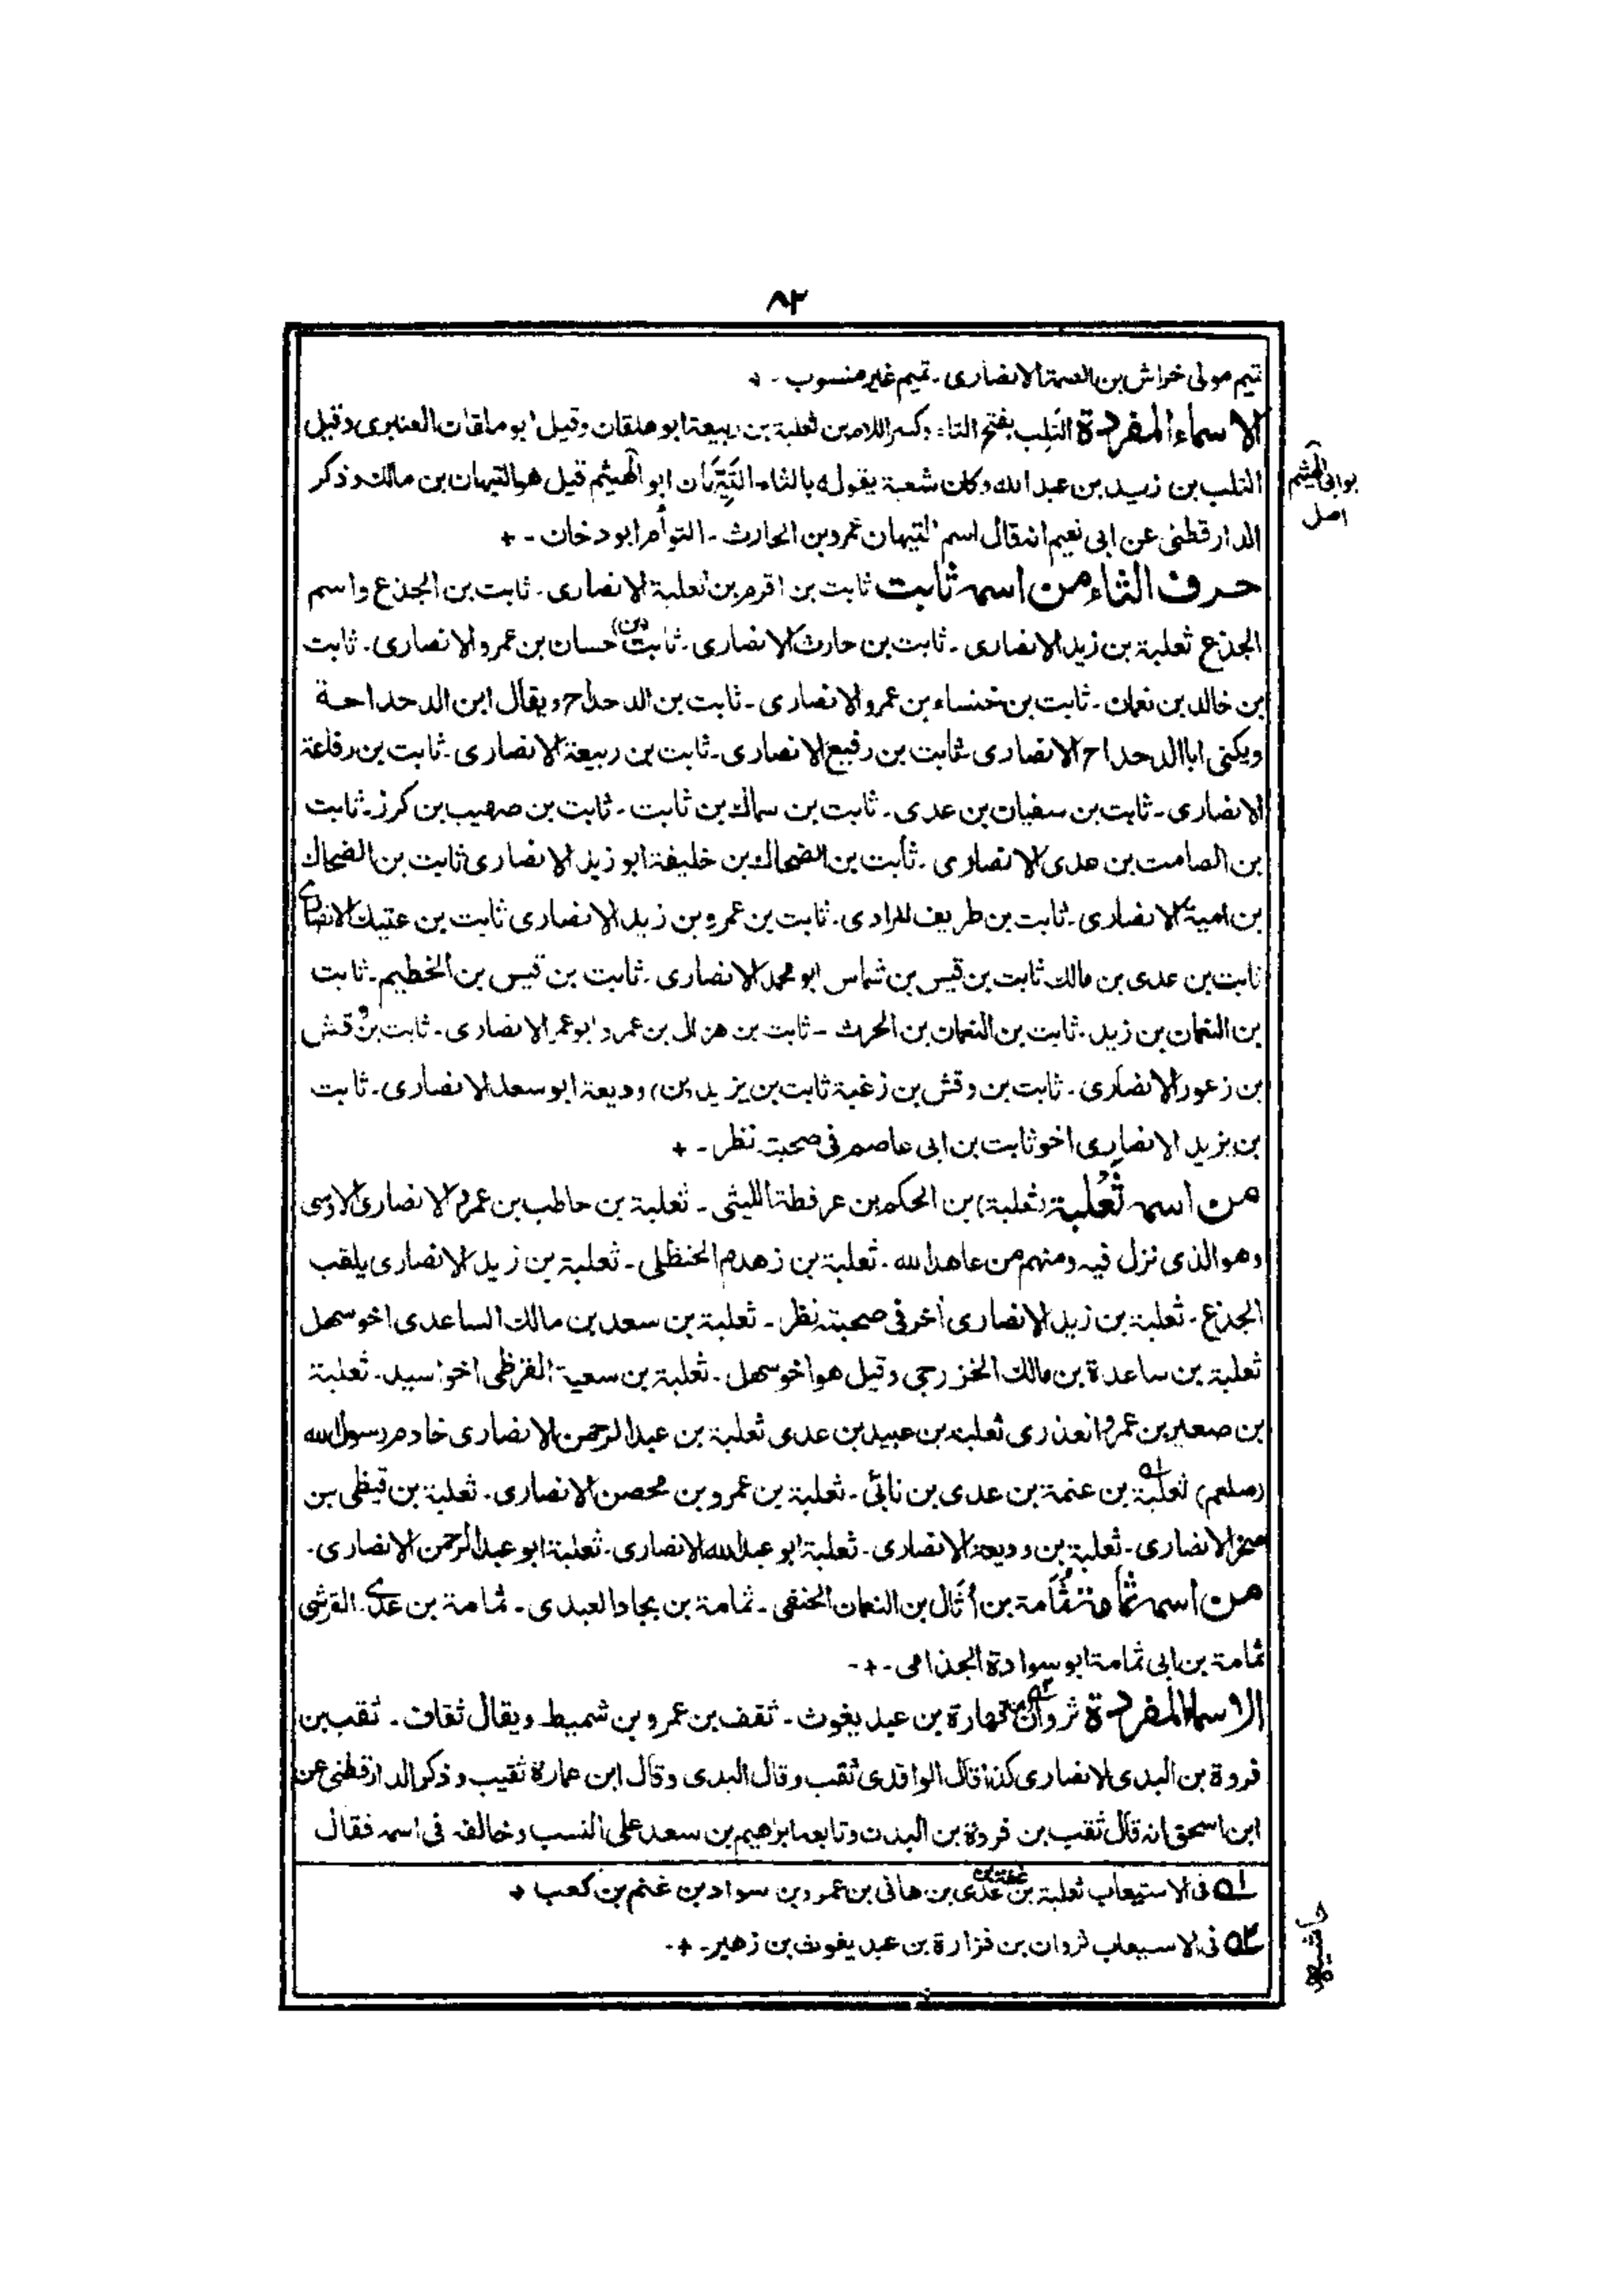 ٨٢
تميم مولى خراش بن الصمة الانصارى ـ تميم غير منسوب ـ +
الاسماء المفردة التَلِب بفتح التاء وكسر اللام بن ثعلبة بن ربيعة ابو هلقان وقيل ابو ملقان العنبرى وقيل
التلب بن زيد بن عبد الله وكان شعبة يقوله بالثاء التَيِّهَان ابو الهيثم قيل هو التيهان بن مالك وذكر
بوابى الهيثم
اصل
الدار قطنى عن ابى نعيم انه قال اسم التيهان عمرو بن الحارث ـ التوأم ابو دخان ـ +
حرف الثاء من اسمه ثابت ثابت بن اقرم بن ثعلبة الانصارى ـ ثابت بن الجذع واسم
الجذع ثعلبة بن زيد الانصارى ـ ثابت بن حارث الانصارى ـ ثابت (بن) حسان بن عمرو الانصارى ـ ثابت
بن خالد بن نعمان ـ ثابت بن خنساء بن عمرو الانصارى ـ ثابت بن الدحداح ويقال ابن الدحداحة
ويكنى ابا الدحداح الانصارى ثابت بن رفيع الانصارى ـ ثابت بن ربيعة الانصارى ـ ثابت بن رفاعة
الانصارى ـ ثابت بن سفيان بن عدى ـ ثابت بن سماك بن ثابت ـ ثابت بن صهيب بن كرز ـ ثابت
بن الصامت بن عدى الانصارى ـ ثابت بن الضحاك بن خليفة ابو زيد الانصارى ثابت بن الضحاك
بن امية الانصارى ـ ثابت بن طريف المرادى ـ ثابت بن عمرو بن زيد الانصارى ثابت بن عتيك الانصارى
ثابت بن عدى بن مالك ثابت بن قيس بن شماس ابو محمد الانصارى ـ ثابت بن قيس بن الخطيم ـ ثابت
بن النعمان بن زيد ـ ثابت بن النعمان بن الحرث ـ ثابت بن هزال بن عمرو ابو عمر الانصارى ـ ثابت بن وقش
بن زعور الانصارى ـ ثابت بن وقش بن زغبة ثابت بن يزيد (بن) وديعة ابو سعد الانصارى ـ ثابت
بن يزيد الانصارى اخو ثابت بن ابى عاصم فى صحبته نظر ـ +
من اسمه ثَعْلَبة (ثعلبة) بن الحكم بن عرفطة الليثى ـ ثعلبة بن حاطب بن عمرو الانصارى الاوسى
وهو الذى نزل فيه ومنهم من عاهد الله ـ ثعلبة بن زهدم الحنظلى ـ ثعلبة بن زيد الانصارى يلقب
الجذع ـ ثعلبة بن زيد الانصارى أخر فى صحبته نظر ـ ثعلبة بن سعد بن مالك الساعدى اخو سهل
ثعلبة بن ساعدة بن مالك الخزرجى وقيل هو اخو سهل ـ ثعلبة بن سعية القرظى اخو اسيد ـ ثعلبة
بن صعير بن عمرو العذرى ثعلبة بن عبيد بن عدى ثعلبة بن عبد الرحمن الانصارى خادم رسول الله
(صلعم) ثعلبة ٥١ بن عنمة بن عدى بن نابى ـ ثعلبة بن عمرو بن محصن الانصارى ـ ثعلبة بن قيظى بن
صخر الانصارى ـ ثعلبة بن وديعة الانصارى ـ ثعلبة ابو عبد الله الانصارى ـ ثعلبة ابو عبد الرحمن الانصارى ـ
من اسمه ثمامة ثُمَامة بن أُثَال بن النعمان الحنفى ـ ثمامة بن بجاد العبدى ـ ثمامة بن عدى القرشى
ثمامة بن ابى ثمامة ابو سوادة الجذامى ـ + ـ
الاسماء المفردة ثروان ٥٢ بن بن عبد يغوث ـ ثقف بن عمرو بن شميط ويقال ثقاف ـ ثقب بن
فروة بن البدى الانصارى كذا قال الواقدى ثقب وقال البدى وقال ابن عمارة ثقيب وذكر الدارقطنى عن
ابن اسحق انه قال ثقب بن فروة بن البدت وتابعه ابراهيم بن سعد على النسب وخالفه فى اسمه فقال
٥١ فى الاستيعاب ثعلبة بن عنمة بن عدى بن هانى بن عمرو بن سواد بن غنم بن كعب +
٥٢ فى الاستيعاب ثروان بن فزارة بن عبد يغوث بن زهير ـ + ـ
حاشيه